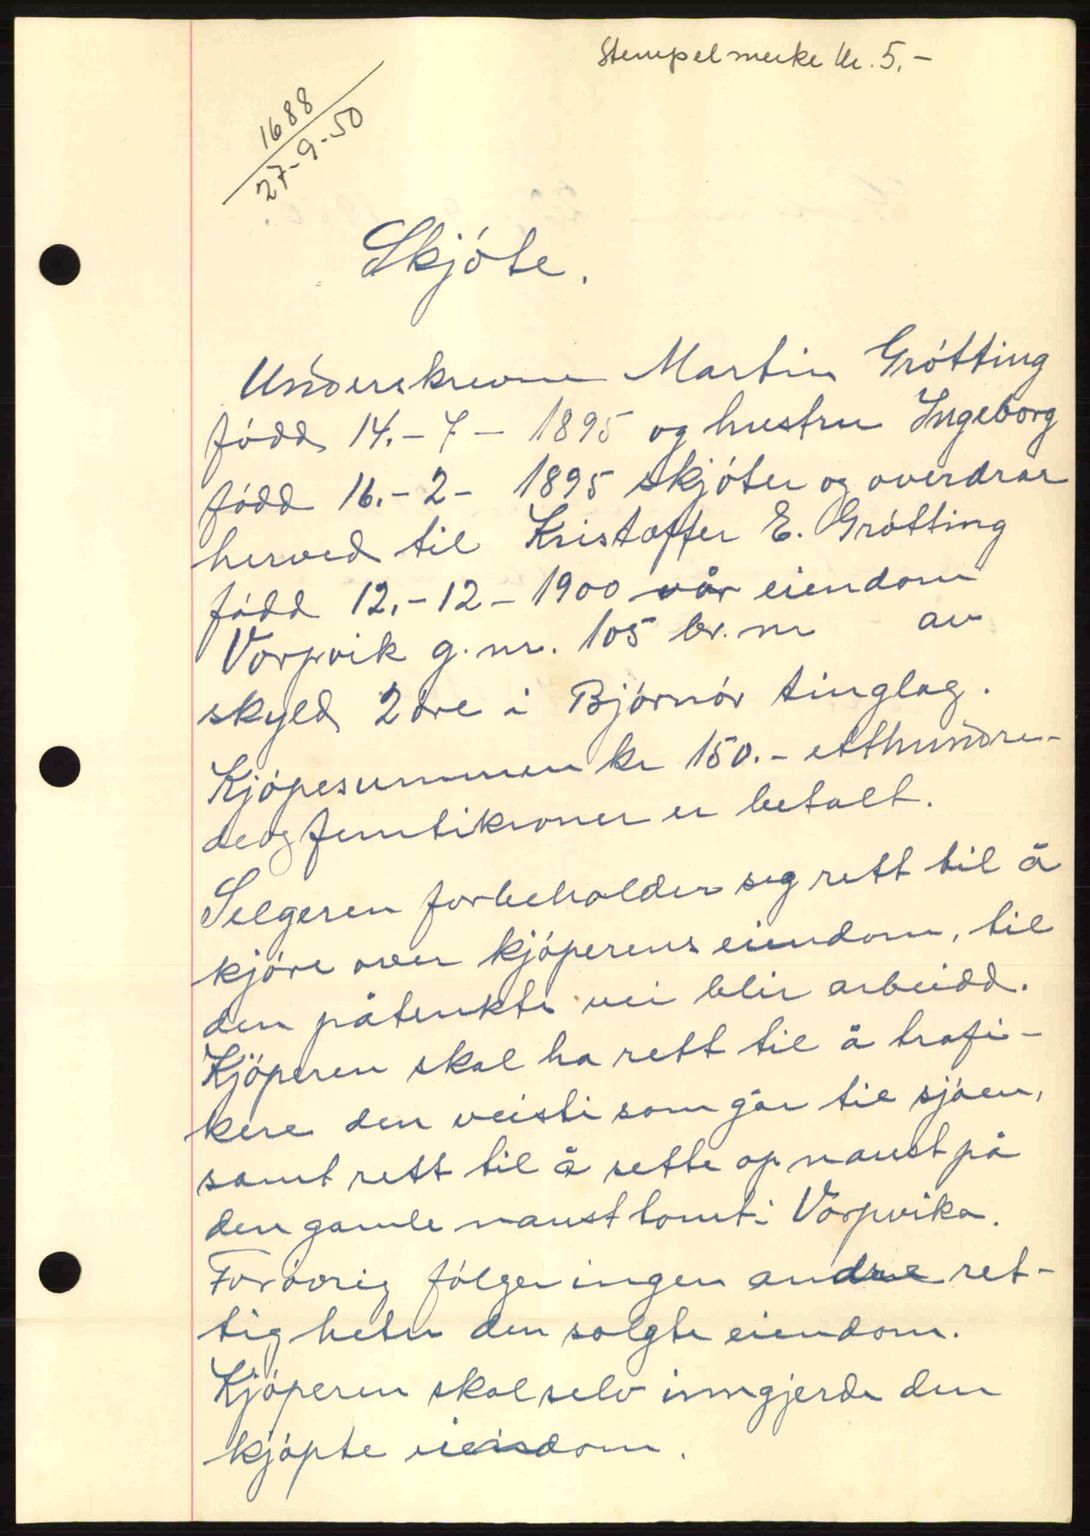 Stempelmerke kr. 5.-
1688
27-9-50
Skjóte.
Underskrevne Martin Grótting
fódd 14.-7- 1895 og hustru Ingeborg
fódd 16.-2- 1895 skjóter og overdrar
herved til Kristoffer E. Grótting
fódd 12.-12-1900 vår eiendom
Vorpvik g.nr. 105 br.nr av
skyld 2 óre i Bjórnór tinglag.
Kjópesummen kr 150.- etthundre-
deogfemtikroner er betalt.
Selgeren forbeholder seg rett til å
kjóre over kjóperens eiendom, til
den påtenkte vei blir arbeidd.
Kjöperen skal ha rett til å trafi-
kere den veisti som går til sjóen,
samt rett til å sette op naust på
den gamle nausttomt i Vorpvika.
Forövrig fólger ingen andre ret-
tigheter den solgte eiendom.
Kjóperen skal selv inngjerde den
kjópte eiendom.